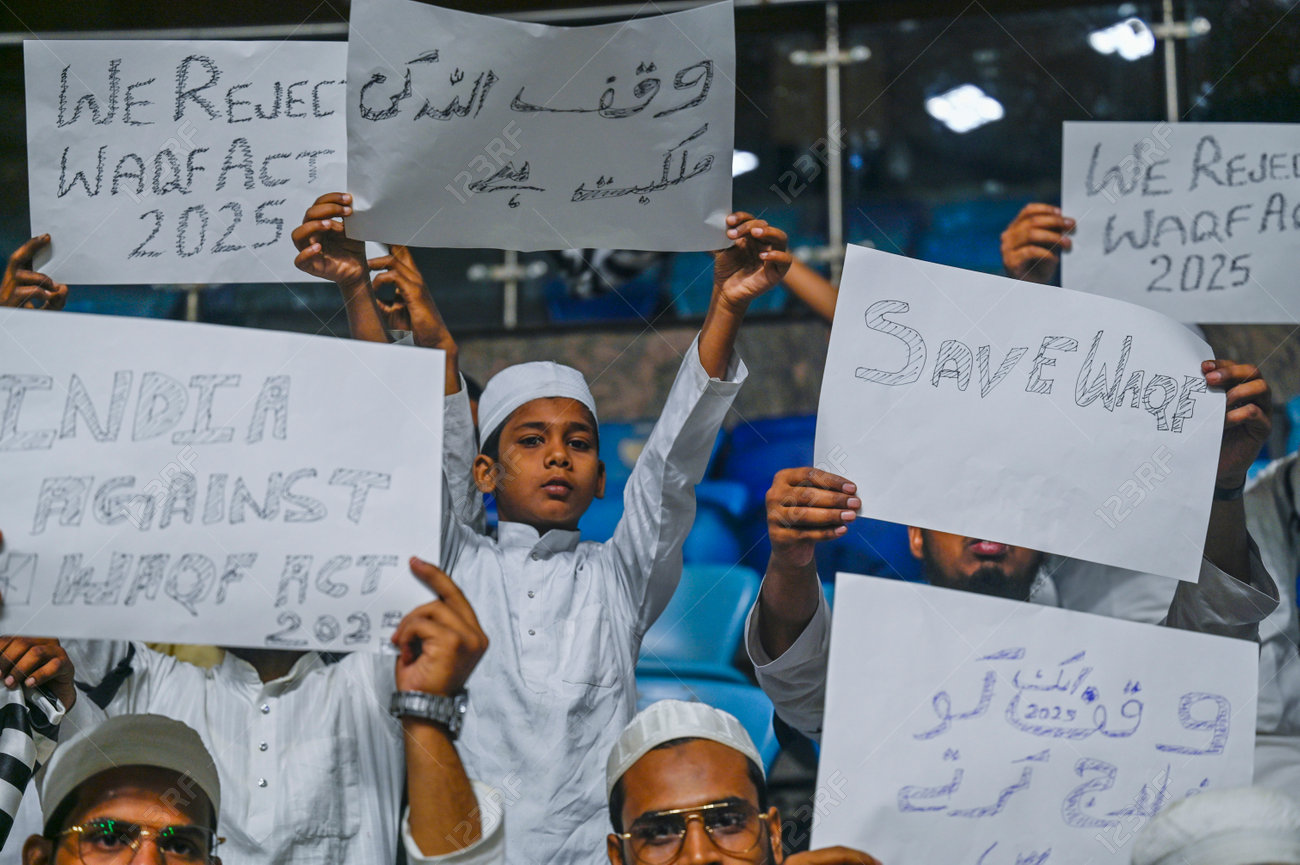 WE REJECT
WAQF ACT
2025
وقف اللہ کی
ملکیت ہے
WE REJEC
WAQF AC
2025
SAVE WAQF
INDIA
AGAINST
WAQF ACT
2025
وقف ایکٹ کو
2025
123RF